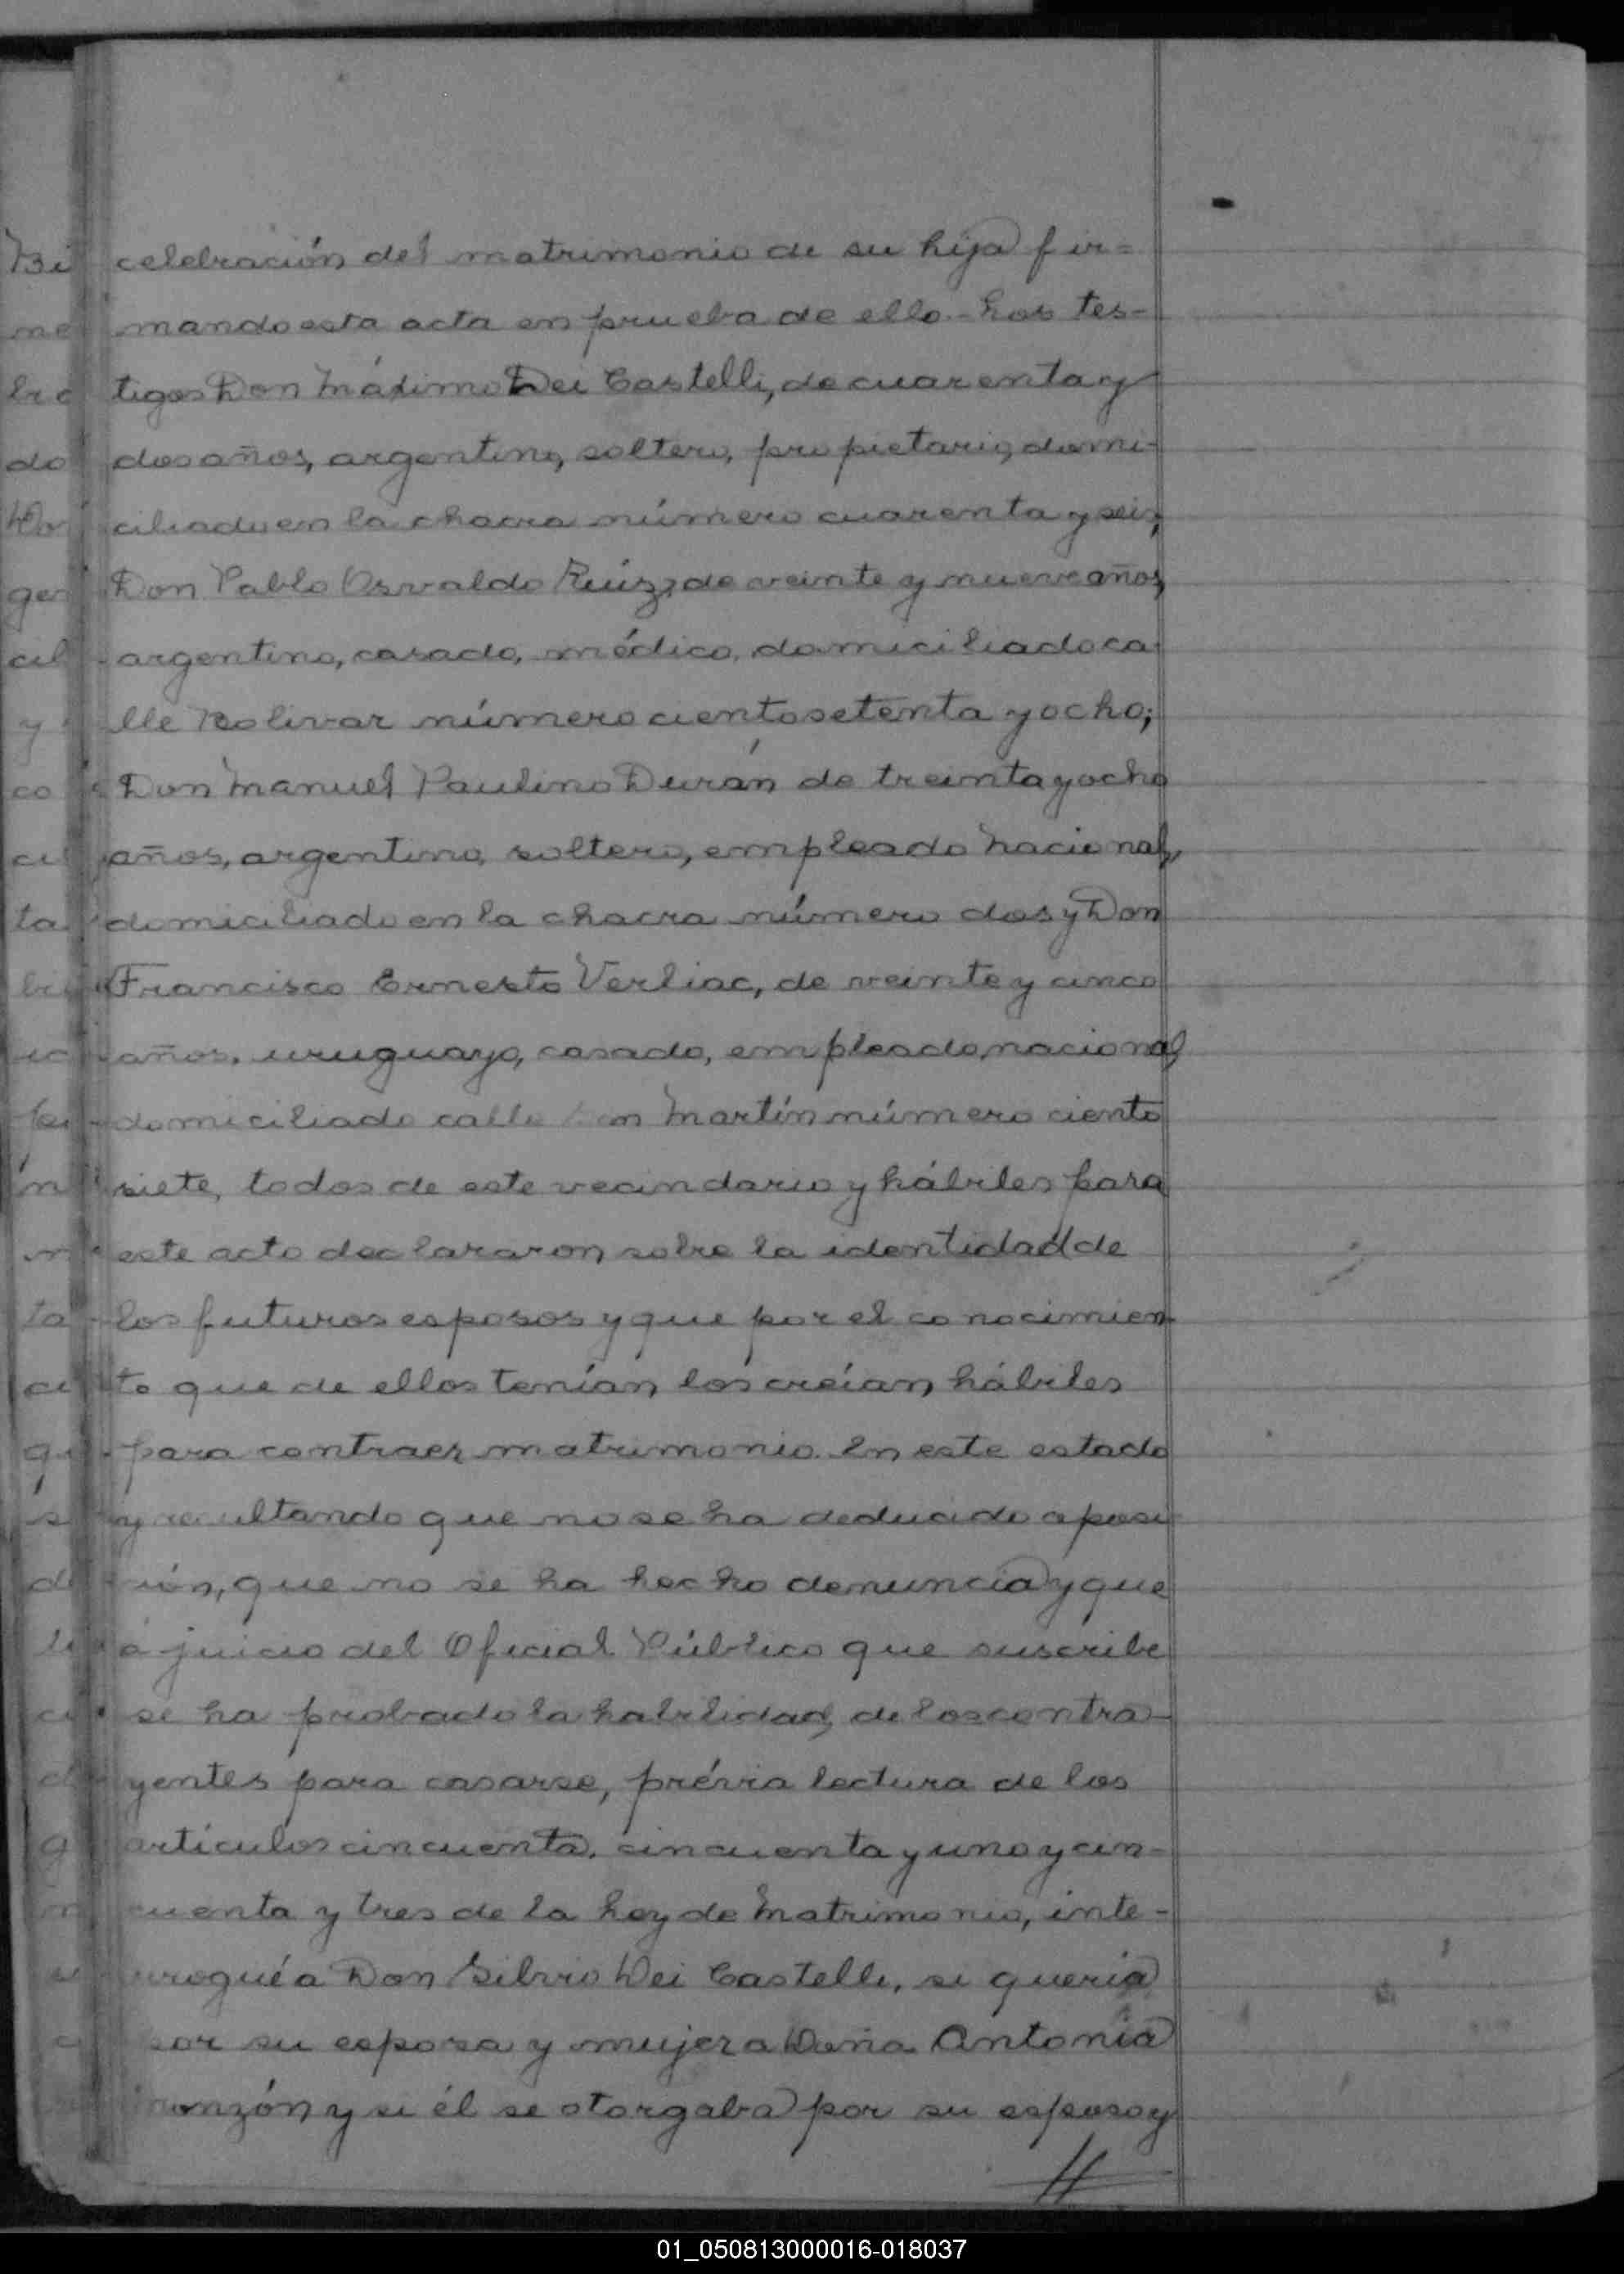 celebración del matrimonio de su hija fir=
mando esta acta en prueba de ello.- Los tes-
tigos Don Máximo Dei Castelli, de cuarenta y
dos años, argentino, soltero, propietario, domi-
ciliado en la chacra número cuarenta y seis,
Don Pablo Osvaldo Ruíz, de veinte y nueve años,
argentino, casado, médico, domiciliado ca-
lle Bolivar número ciento setenta y ocho;
Don Manuel Paulino Durán de treinta y ocho
años, argentino, soltero, empleado Nacional,
domiciliado en la chacra número dos y Don
Francisco Ernesto Verliac, de veinte y cinco
años, uruguayo, casado, empleado nacional,
domiciliado calle San Martín número ciento
siete, todos de este vecindario y hábiles para
este acto declararon sobre la identidad de
los futuros esposos y que por el conocimien-
to que de ellos tenían los creían hábiles
para contraer matrimonio. En este estado
y resultando que no se ha deducido oposi
ción, que no se ha hecho denuncia y que
á juicio del Oficial Público que suscribe
se ha probado la habilidad de los contra-
yentes para casarse, prévia lectura de los
artículos cincuenta, cincuenta y uno y cin-
cuenta y tres de la Ley de Matrimonio, inte-
rrogué a Don Silvio Dei Castelli, si quería
por su esposa y mujer a Doña Antonia
y si él se otorgaba por su esposo y
01_050813000016-018037